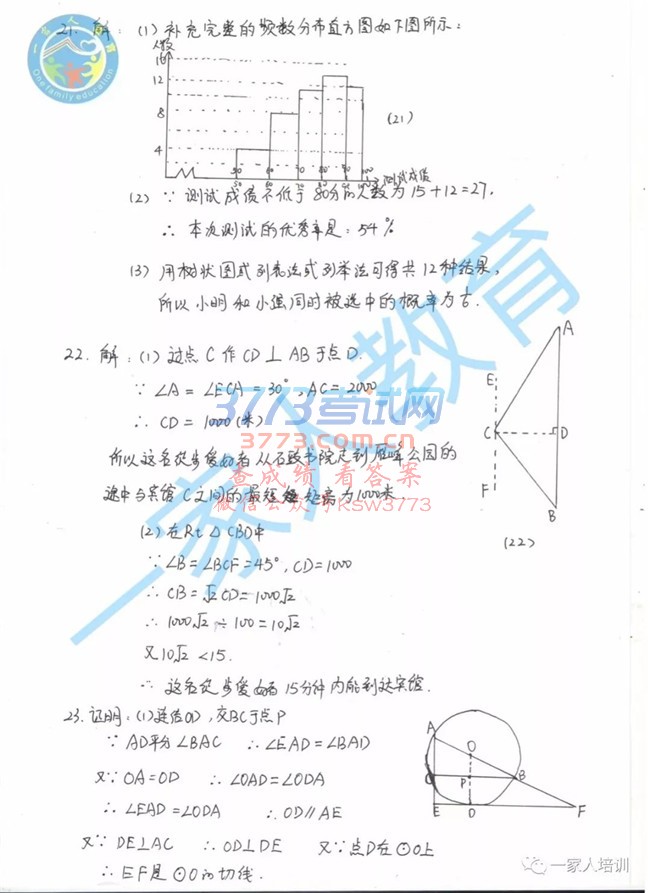 21. 解：(1) 补充完整的频数分布直方图如下图所示：
一家人教育
One family education
人数
16
12
8
4
50 60 70 80 90 100
测试成绩
(21)
(2) ∵ 测试成绩不低于80分的人数为15+12=27.
∴ 本次测试的优秀率是：54%
(3) 用树状图或列表法或列举法可得共12种结果,
所以小明和小强同时被选中的概率为
22. 解：(1) 过点C作CD⊥AB于点D.
∵ ∠A = ∠ECA = 30°, AC = 2000
∴ CD = 1000 (米)
所以这名徒步爱好者从石鼓书院走到雁峰公园的
途中与宾馆C之间的最短距离为1000米.
A
E
C
D
F
B
(22)
3773考试网
3773.com.cn
查成绩看答案
微信公众号ksw3773
一家人教育
(2) 在Rt△CBD中
∵ ∠B = ∠BCF = 45°, CD=1000
∴ CB = √2CD = 1000√2
∴ 1000√2 ÷ 100 = 10√2
又10√2 < 15.
∴ 这名徒步爱好者15分钟内能到达宾馆.
23. 证明：(1) 连结OD, 交BC于点P
∵ AD平分∠BAC ∴ ∠EAD = ∠BAD
又∵ OA=OD ∴ ∠OAD = ∠ODA
∴ ∠EAD = ∠ODA ∴ OD∥AE
又∵ DE⊥AC ∴ OD⊥DE 又∵ 点D在⊙O上
∴ EF是⊙O的切线.
A
O
P
B
E
D
F
一家人培训